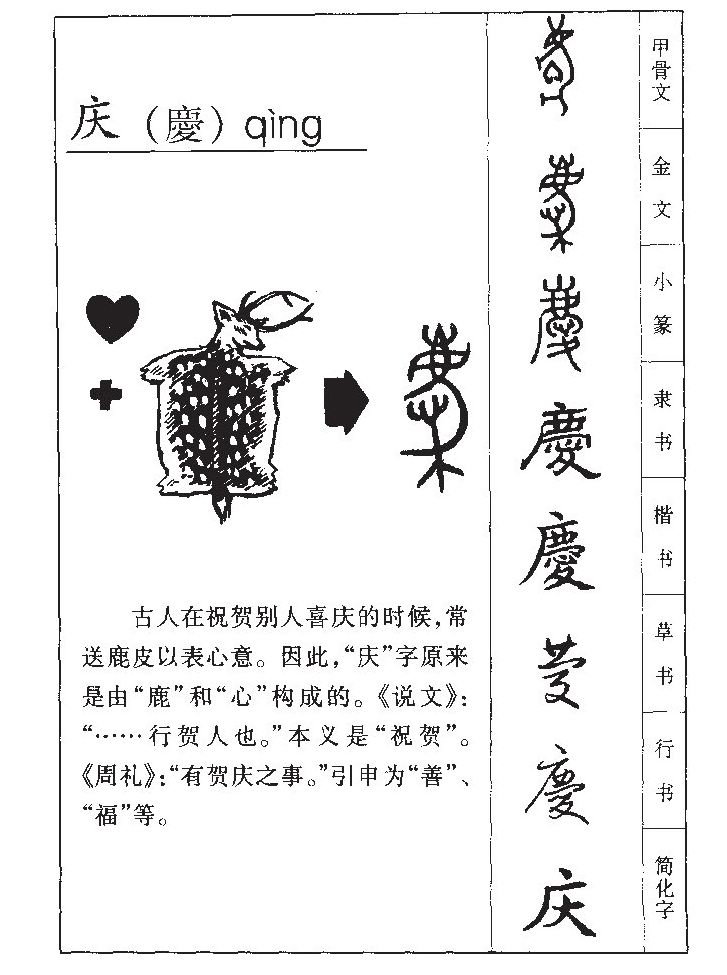 庆（慶）qìng
古人在祝贺别人喜庆的时候，常
送鹿皮以表心意。因此，“庆”字原来
是由“鹿”和“心”构成的。《说文》：
“……行贺人也。”本义是“祝贺”。
《周礼》：“有贺庆之事。”引申为“善”、
“福”等。
慶
慶
慶
慶
庆
甲骨文
金文
小篆
隶书
楷书
草书
行书
简化字